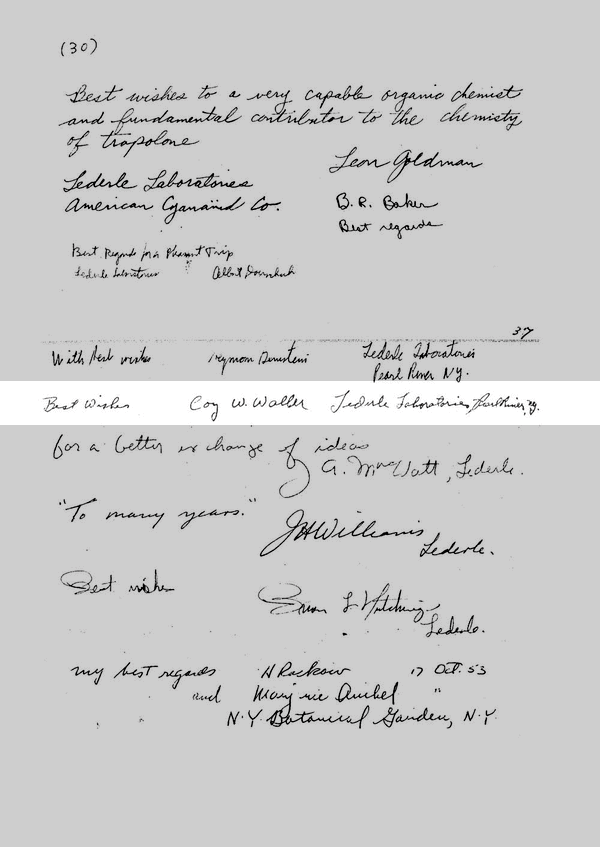 (30)
Best wishes to a very capable organic chemist
and fundamental contributor to the chemisty
of tropolone
Leon Goldman
Lederle Laboratories
American Cyanamid Co.
B. R. Baker
Best regards
Best Regards for a Pleasant Trip
Lederle Laboratories Albert
37
With best wishes Seymour Bernstein Lederle Laboratories
Pearl River N.Y.
Best Wishes Coy W. Waller Lederle Laboratories, Pearl River, N.Y.
for a better exchange of ideas
G. McWatt, Lederle.
"To many years."
JHWilliams
Lederle.
Best wishes
L Hutchings
Lederle.
my best regards H Rackow 17 Oct. 53
and Marjorie Anchel "
N.Y. Botanical Garden, N.Y.